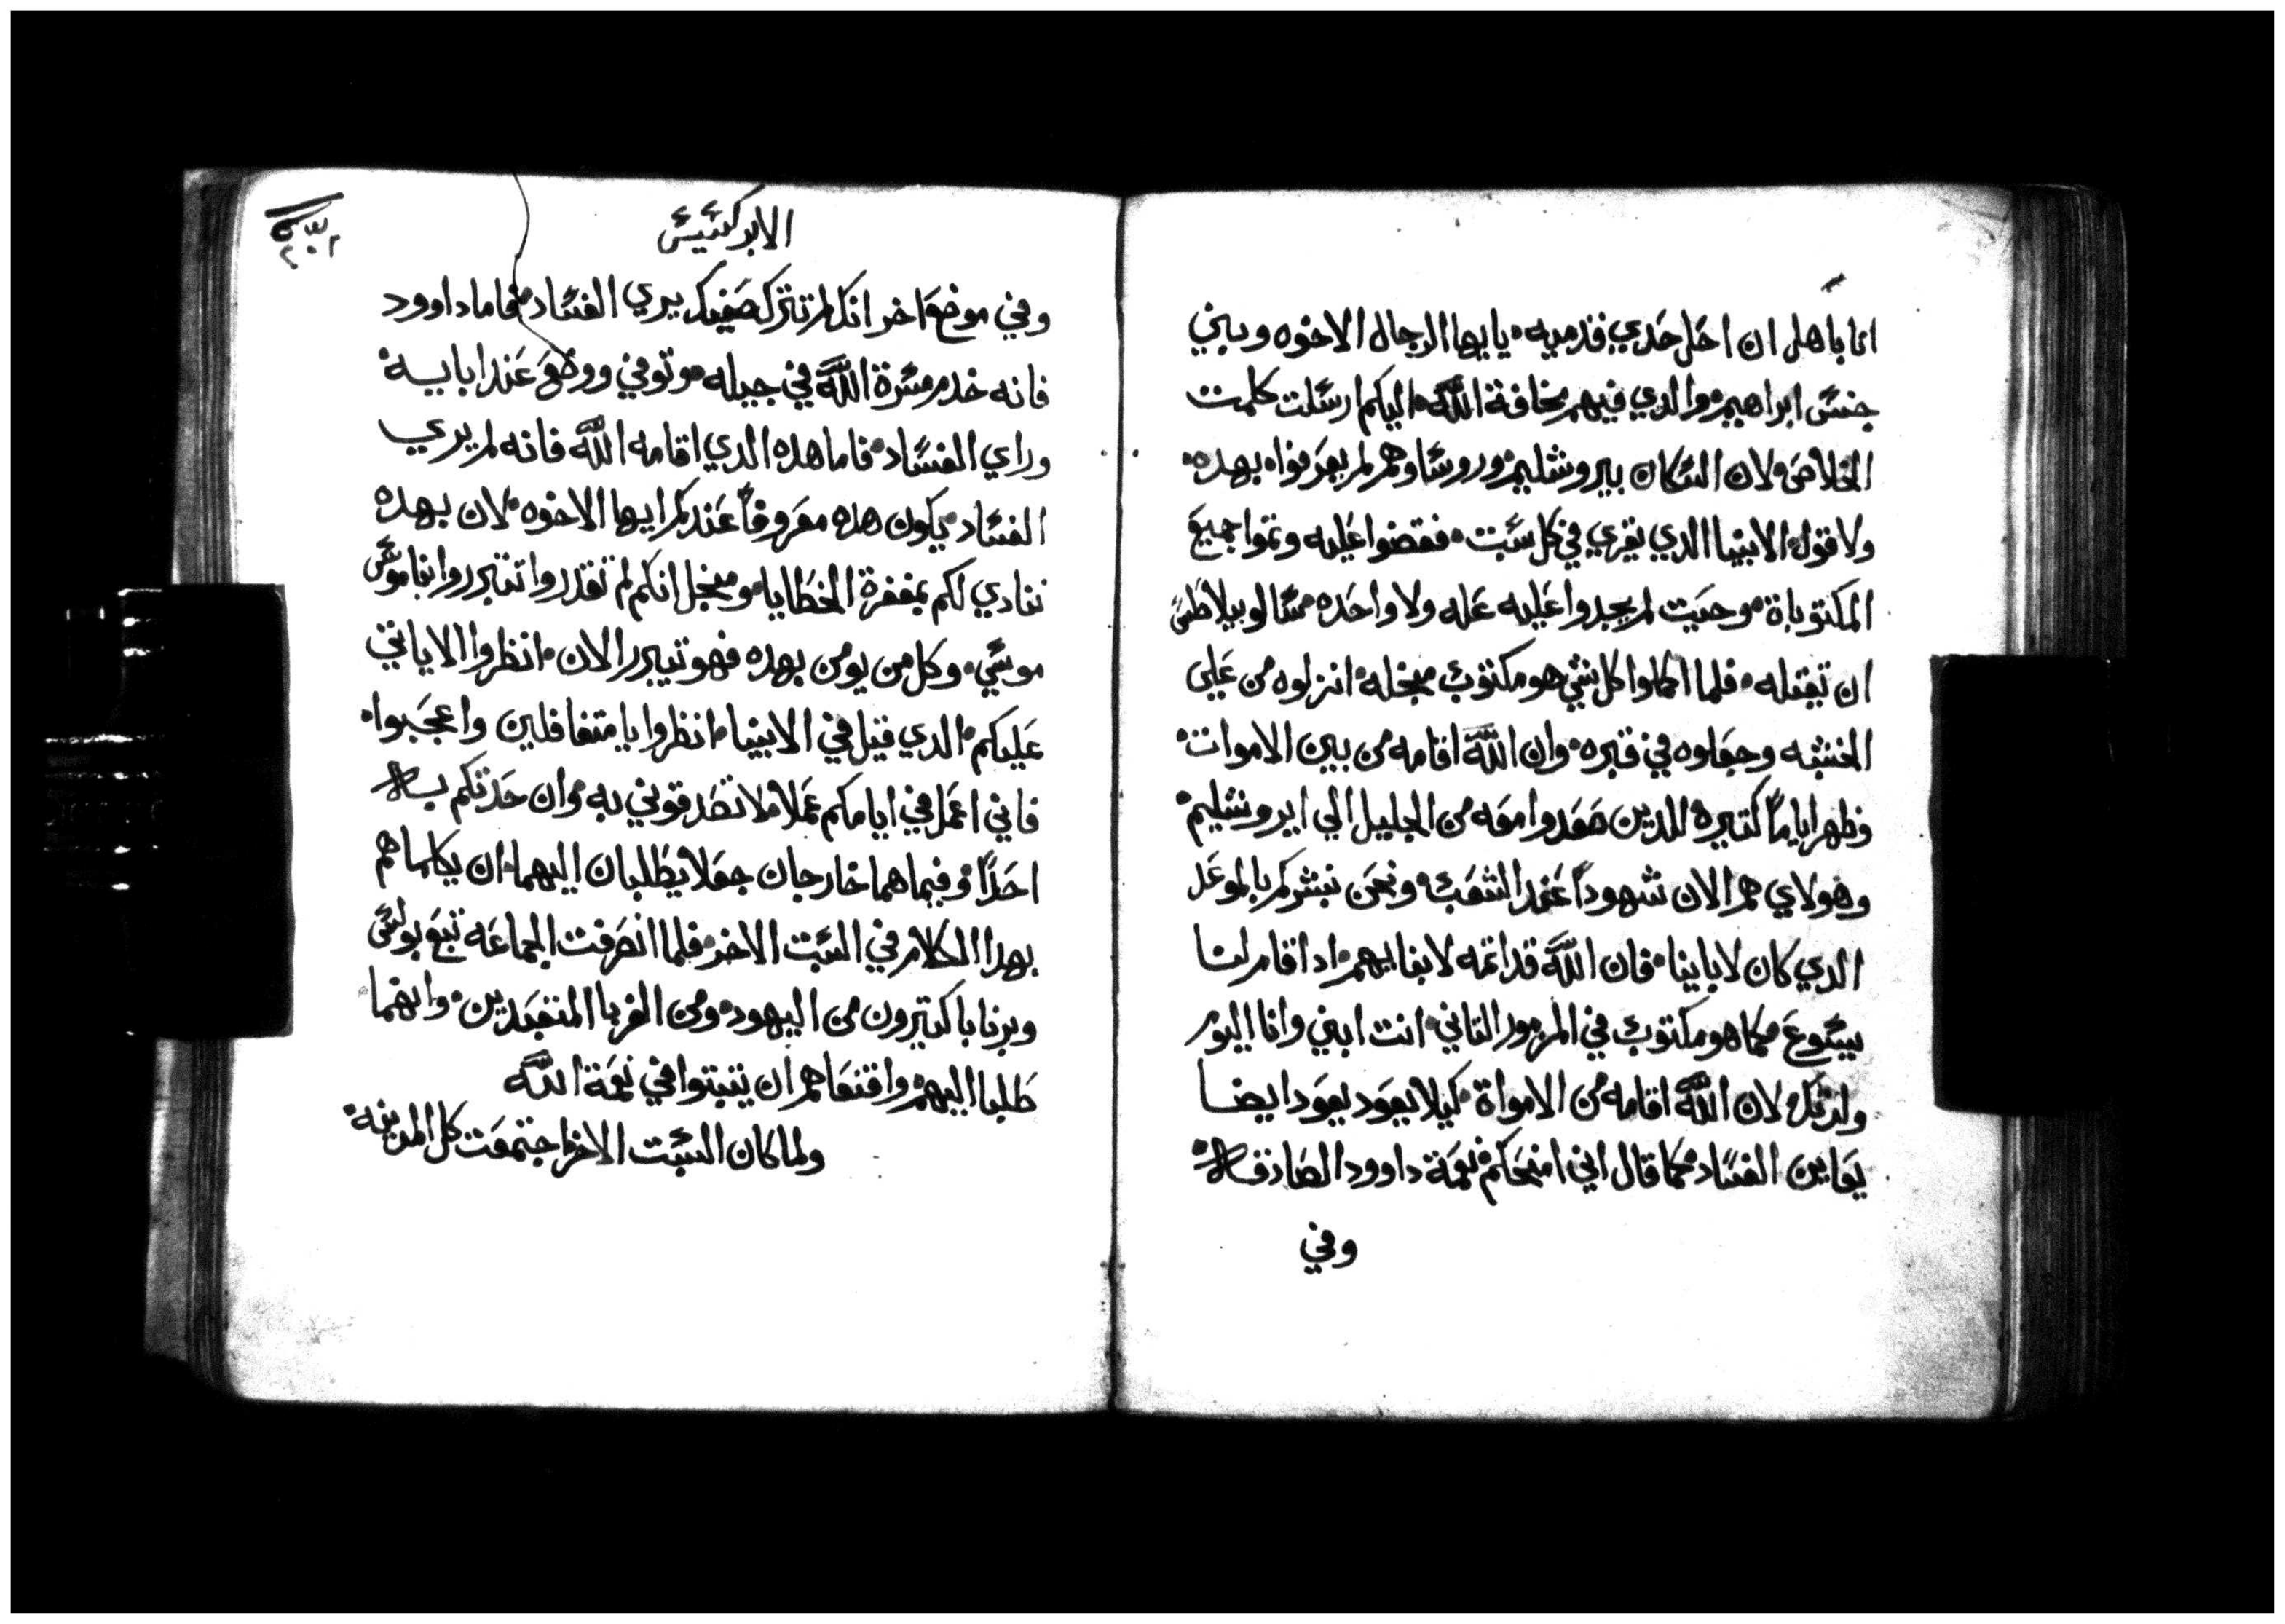 انا باهل ان احل حدي قدميه يا ايها الرجال الاخوه وبني
جنس ابراهيم والدي فيهم مخافة الله اليكم ارسلت كلمت
الخلاص لان السكان بيروشليم وروساوهم لم يعرفوا بهده
ولا قول الانبيا الدي يقري في كل سبت فقضوا عليه وتموا جميع
المكتوباة وحيت لم يجدوا عليه عله ولا واحده سالو بيلاطس
ان تقتله فلما اكملوا كل شي هو مكتوب مجله انزلوه من علي
الخشبه وجعلوه في قبره وان الله اقامه من بين الاموات
وظهر اياماً كتيره للدين صعدوا معه من الجليل الي ايروشليم
وهولاي هم الان شهوداً عند الشعب ونحن نبشركم بالموعد
الدي كان لاباينا فان الله قد اتمه لابنايهم اد اقام لنا
يسوع كما هو مكتوب في المزمور التاني انت ابني وانا اليوم
ولدتك لان الله اقامه من الامواة كيلا يعود يعود ايضا
يعاين الفساد كما قال اني امنحكم نعمة داوود الصادقه
وفي
الابركسيس
وفي موضع اخر انك لم تترك صفيك يري الفساد فاما داوود
فانه خدم مسرة الله في جيله وتوفي ووضع عند ابايه
وراي الفساد فاما هده الدي اقامه الله فانه لم يري
الفساد يكون هده معروفاً عندكم ايها الاخوه لان بهده
ننادي لكم بمغفرة الخطايا ومنجل انكم لم تقدروا تتبرروا بناموس
موسي وكل من يومن بهده فهو تيبرر الان انظروا الا ياتي
عليكم الدي قيل في الانبيا انظروا يا متغافلين واعجبوا
فاني اعمل في ايامكم عملا ما لا تصدقوني به وان حدتكم به
احداً وفيما هما خارجان جعلا يطلبان اليهما ان يكلماهم
بهدا الكلام في السبت الاخر فلما انصرفت الجماعه تبع بولس
وبرنابا كتيرون من اليهود ومن الغربا المتعبدين وانهما
طلبا اليهم واقنعاهم ان يتبتوا في نعمة الله
ولما كان السبت الاخر اجتمعت كل المدينه